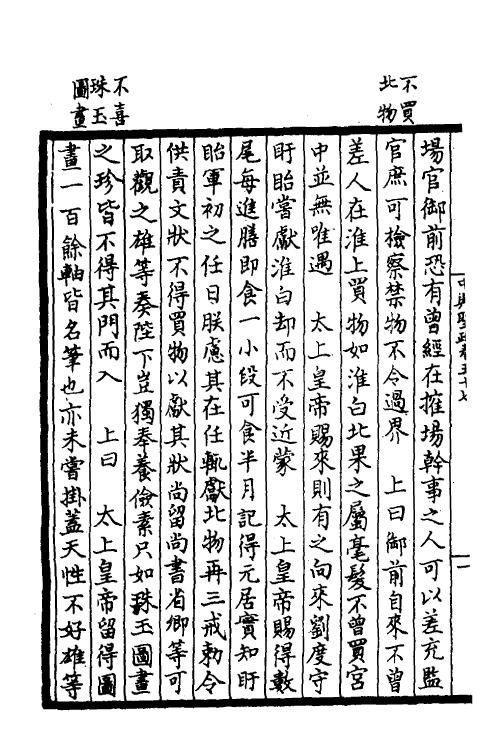 不買
北物
不喜
珠玉
圖畫
中興聖政卷五十七
場官御前恐有曾經在搉場幹事之人可以差充監
官庶可檢察禁物不令過界　上曰御前自來不曾
差人在淮上買物如淮白北果之屬毫髮不曾買宮
中並無唯遇　太上皇帝賜來則有之向來劉度守
盱眙嘗獻淮白却而不受近蒙　太上皇帝賜得數
尾每進膳即食一小段可食半月記得元居實知盱
眙軍初之任日朕慮其在任輒獻北物再三戒勅令
供責文狀不得買物以獻其狀尚留尚書省卿等可
取觀之雄等奏陛下豈獨奉養儉素只如珠玉圖畫
之珍皆不得其門而入　上曰　太上皇帝留得圖
畫一百餘軸皆名筆也亦未嘗掛蓋天性不好雄等